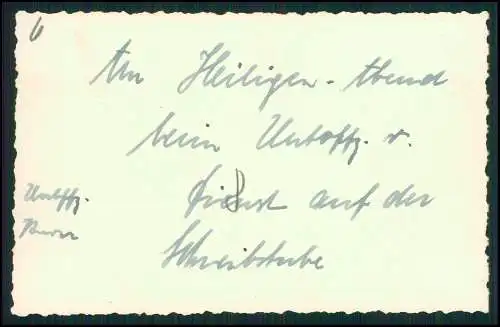 6
Am Heiligen-Abend
beim Untoffz. v.
Dienst auf der
Schreibstube
Untffz.